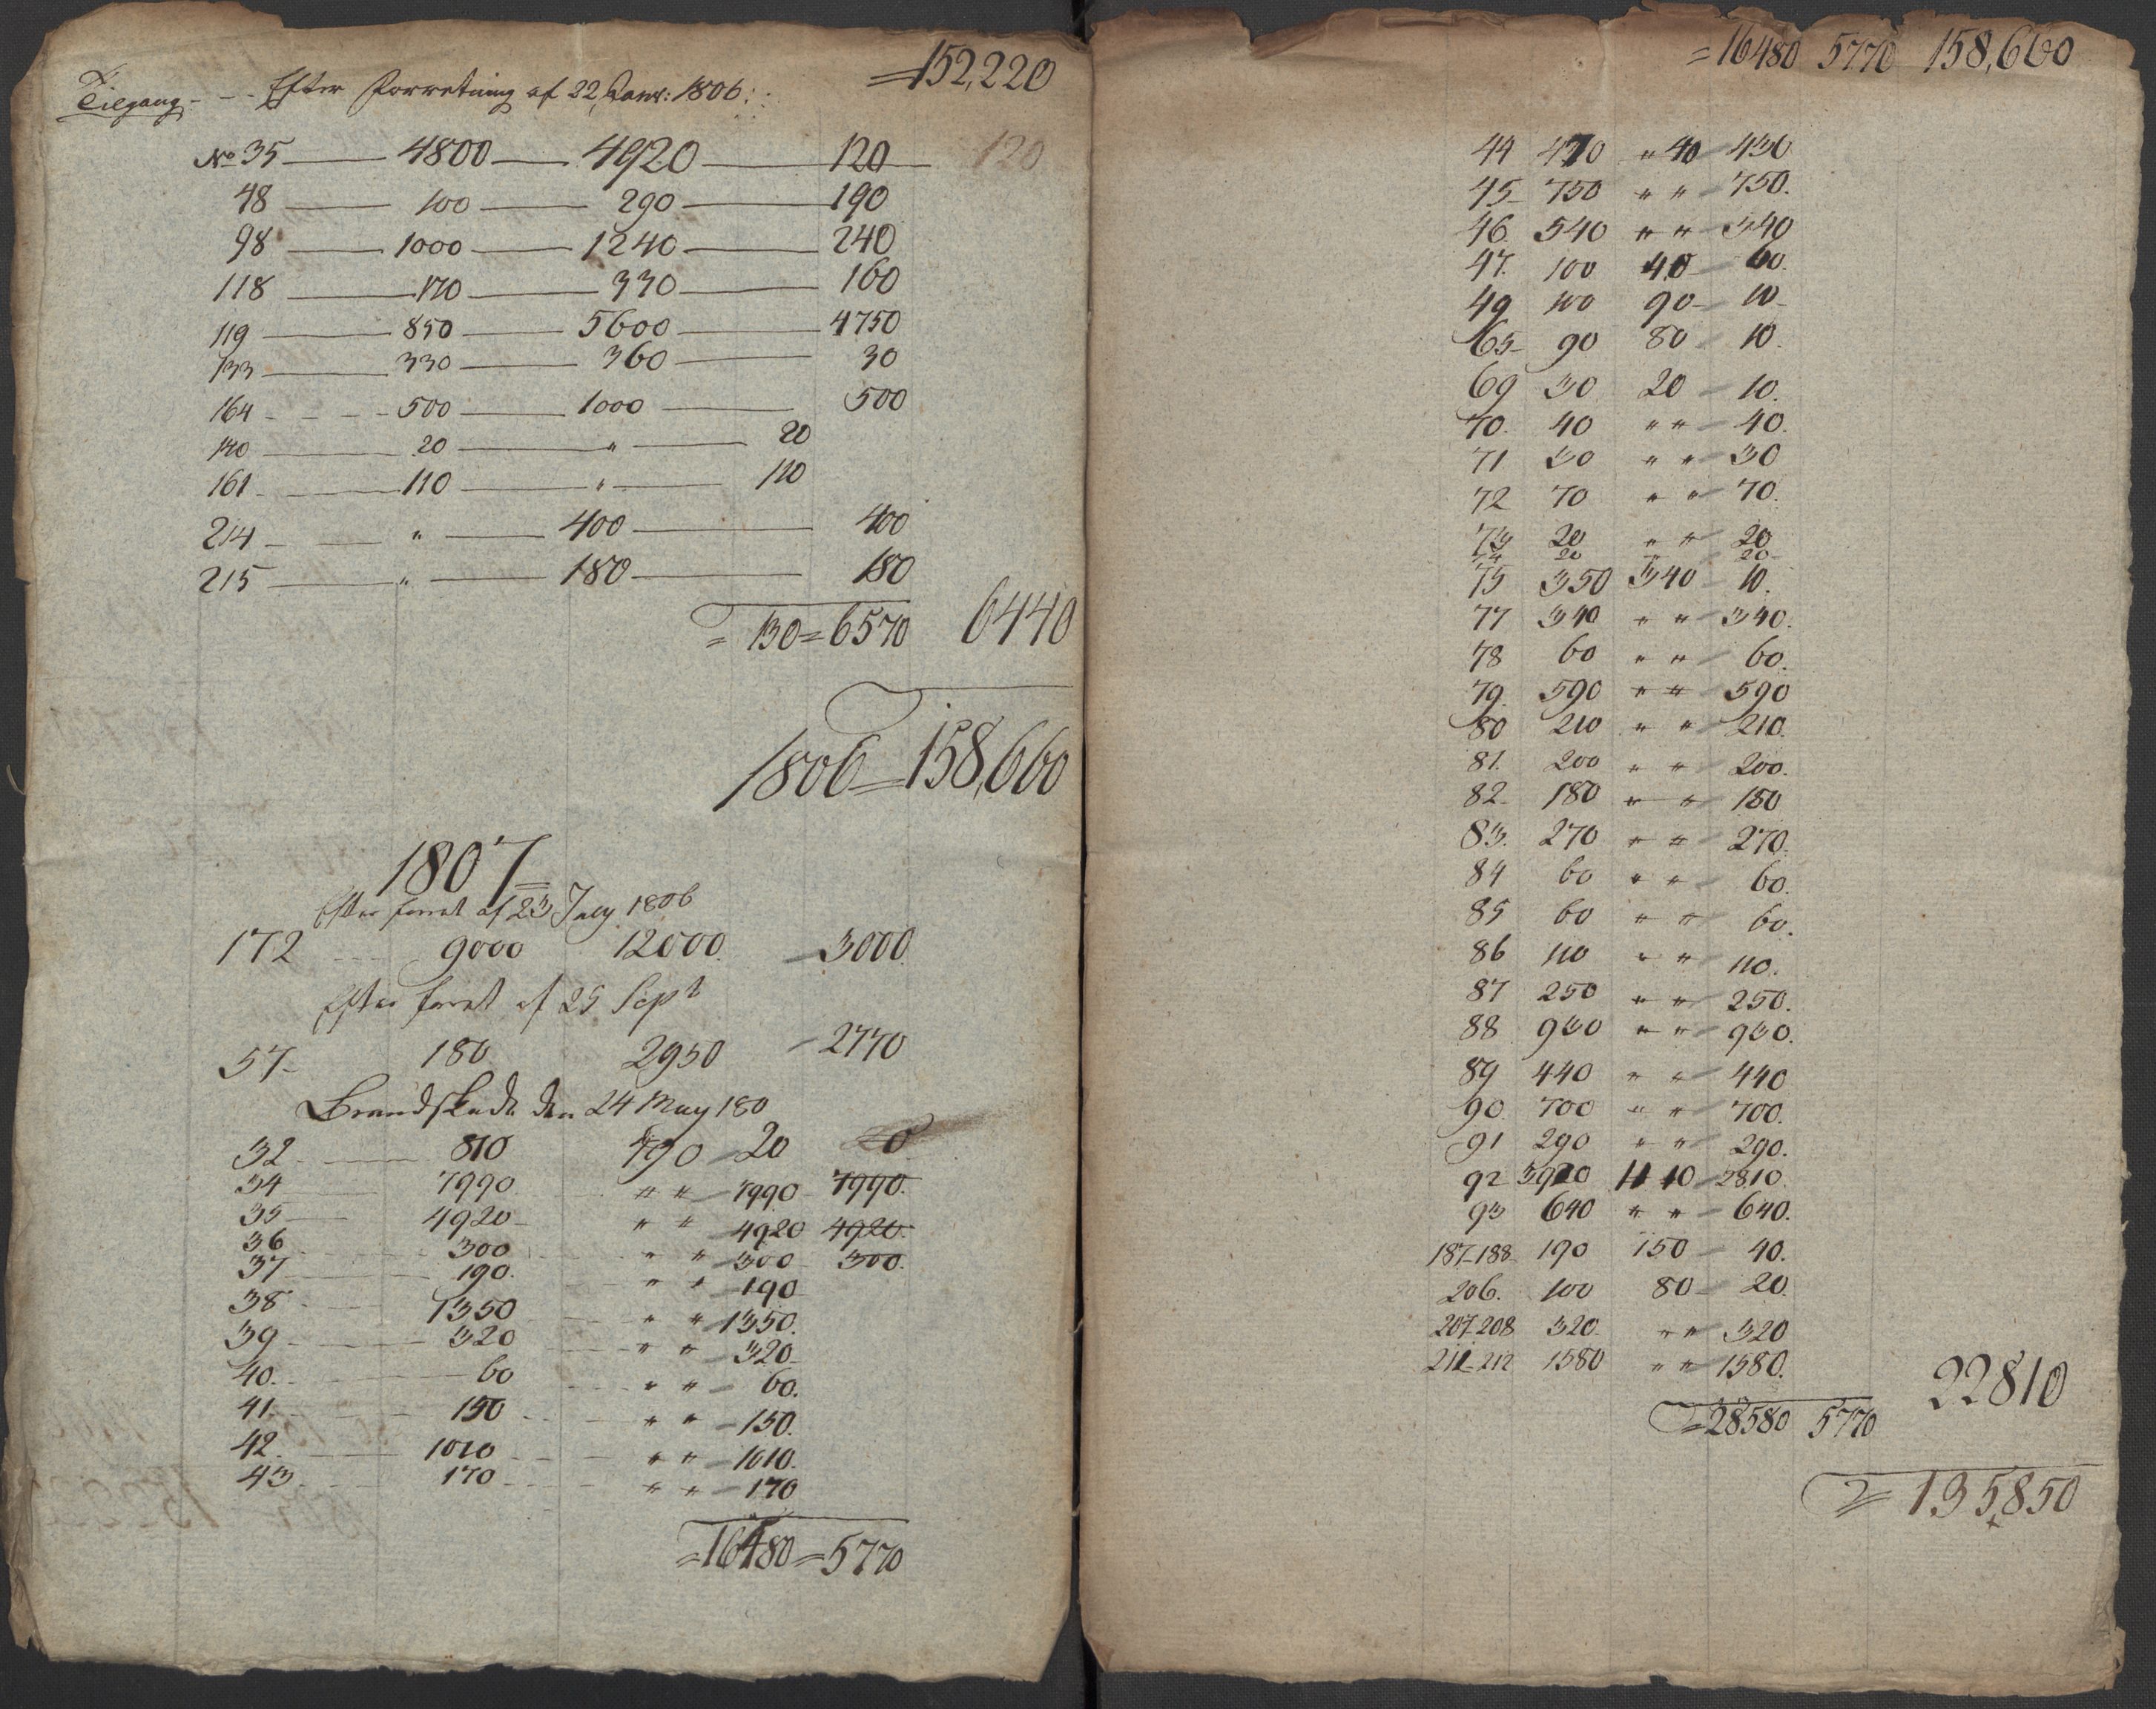 = 152,220
Tilgang - - - Efter Forretning af 22 Janr: 1806:
No 35 — 4800 — 4920 — 120 — 120
48 — 100 — 290 — 190
98 — 1000 — 1240 — 240
118 — 170 — 330 — 160
119 — 850 — 5600 — 4750
133 — 330 — 360 — 30
164 - - - - 500 — 1000 — 500
140 — 20 — " — 20
161 - — 110 — " — 110
214 - — " — 400 — 400
215 — " — 180 — 180
= 130 = 6570 6440
1806 = 158,660
1807
Efter forret af 23 July 1806
172 - - - 9000 12000. — 3000.
Efter forret af 25 Sept
57 - 180 2950 — 2770
Brandskade den 24 May 180
32 - — 810 790 — 20 20
34 — 7990 " " — 7990 — 7990.
35 — 4920 - " " 4920 4920.
36 - - - 300 " " — 300 — 300.
37 — 190. " " — 190
38 - — 1350 " " — 1350.
39 - — 320 " " — 320 -
40. - — 60 " " — 60.
41. - — 150 " " — 150.
42. - — 1010 " " — 1010.
43. - — 170 " " — 170
= 16480 = 5770
= 16480 5770 158,660
44 470 " 40 — 430
45 - 750 " " — 750.
46. 540 " " — 540
47. 100 40 — 60.
49 100 90 — 10 -
65 - 90 80 — 10.
69 30 20 — 10.
70. 40 " " — 40.
71 30 " " — 30
72 70 " " — 70.
73 20 " " 20
74 20 " 20
75 350 340 — 10.
77 340 " " — 340.
78 60 " " — 60.
79. 590 " " — 590
80 210 " " — 210.
81. 200 " " — 200.
82 - 180 " " — 180
83. 270 " " — 270.
84 60 " " — 60.
85 60 " " — 60.
86 110 " " — 110.
87 250 " " — 250.
88 930 " " — 930.
89 440 " " — 440
90. 700 " " — 700.
91 290 " " — 290.
92 3920 1110 — 2810.
93 640 " " — 640.
187-188 - 190 150 — 40.
206. 100 80 — 20.
207-208 320. " " — 320
211-212 1580 " " — 1580.
22810
= 28580 5770
= 135,850